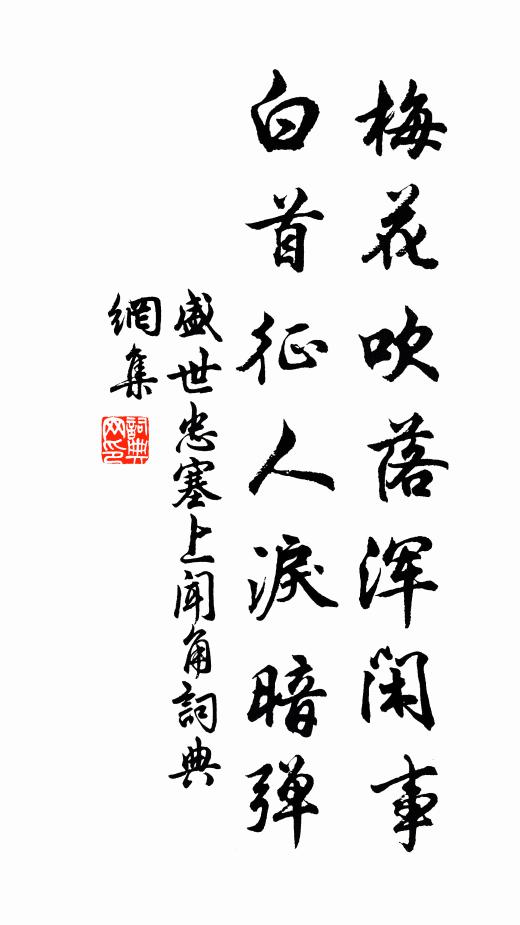 梅花吹落浑闲事
白首征人淚暗弹
盛世忠塞上闻角詞典
網集
詞典
网印